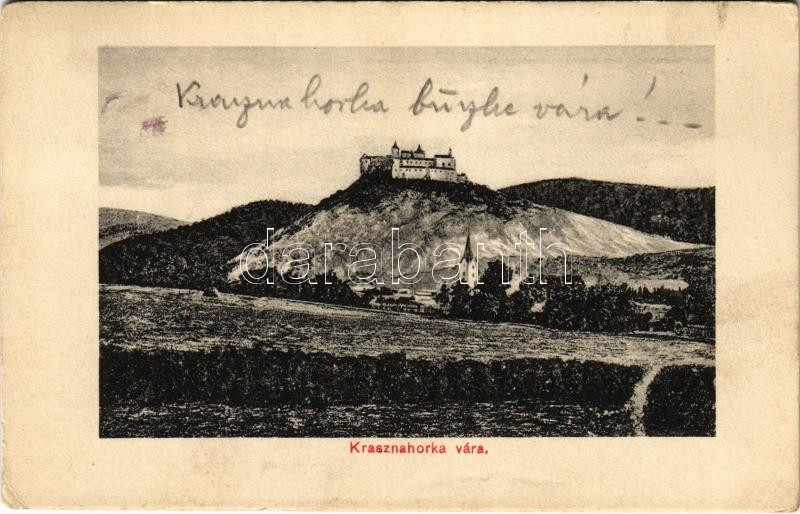 Krasznahorka büszke vára!...
darabanth
Krasznahorka vára.